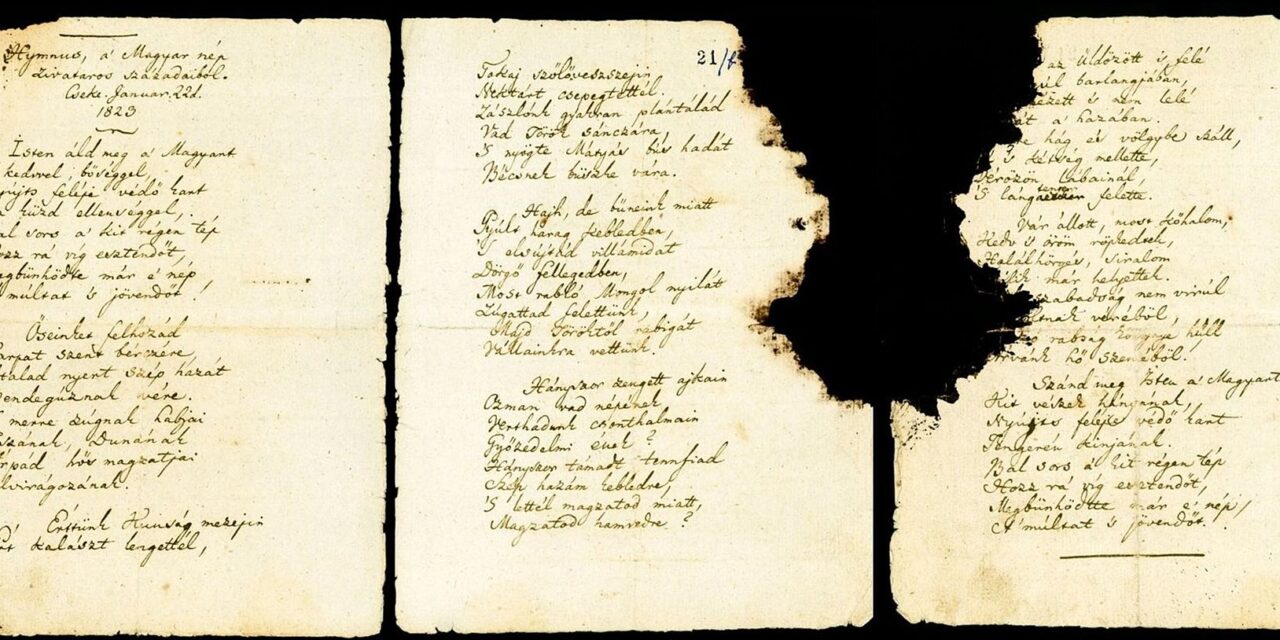 Hymnus, a' Magyar nép
zivataros századaiból.
Cseke. Januar. 22d.
1823
Isten áld meg a' Magyart
kedvvel, bőséggel,
felejé védő kart
küzd ellenséggel,
sors a' kit régen tép
rá víg esztendőt,
már e' nép
múltat 's jövendőt!
Őseinket felhozád
szent bérczére,
nyert szép hazát
vére.
merre zúgnak habjai
Dunának
hős magzatjai
Értünk Kunság mezejin
kalászt lengettél,
21/f
Tokaj szőlővesszejin
Nektárt csepegtettél.
Zászlónk gyakran plántálád
Vad Török sánczára,
'S nyögte Mátyás bús hadát
Bécsnek büszke vára.
Hajh, de bűneink miatt
Gyúlt harag kebledben,
'S elsújtád villámidat
Dörgő fellegedben,
Most rabló Mongol nyilát
Zúgattad felettünk,
Majd Töröktől rabigát
Vállainkra vettünk.
Hányszor zengett ajkain
Ozman vad népének
Verthadunk csonthalmain
Győzedelmi ének?
Hányszor támadt tennfiad
Szép hazám kebledre,
'S lettél magzatod miatt,
Magzatod hamvedre?
az üldözött 's felé
barlangjában,
's nem lelé
a' hazában.
hág és völgybe száll,
's kétség mellette,
Vérözön lábainál,
'S felette.
Vár állott, most kőhalom,
Kedv 's öröm röpkedtek,
Halálhörgés, siralom
már helyettek.
szabadság nem virúl
véréből,
rabság könnye hull
hő szeméből.
Szánd meg Isten a' Magyart
Kit vészek hányának,
Nyújts feléje védő kart
Tengerén kínjának.
Bal sors a' kit régen tép
Hozz rá víg esztendőt,
Megbűnhődte már e' nép
A' múltat 's jövendőt.